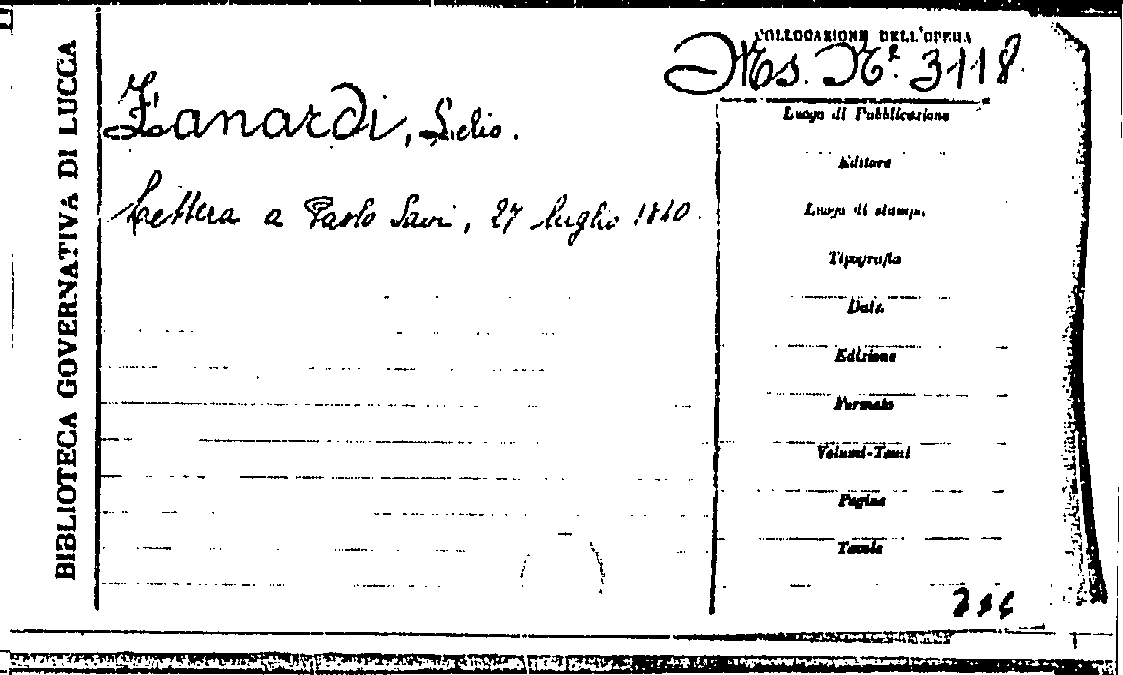 BIBLIOTECA GOVERNATIVA DI LUCCA
COLLOCAZIONE DELL'OPERA
Ms. N.º 3118.
Zanardi, Lelio.
Lettera a Paolo Savi, 27 luglio 1840.
Luogo di Pubblicazione
Editore
Luogo di stampa
Tipografia
Data
Edizione
Formato
Volumi-Tomi
Pagine
Tavole